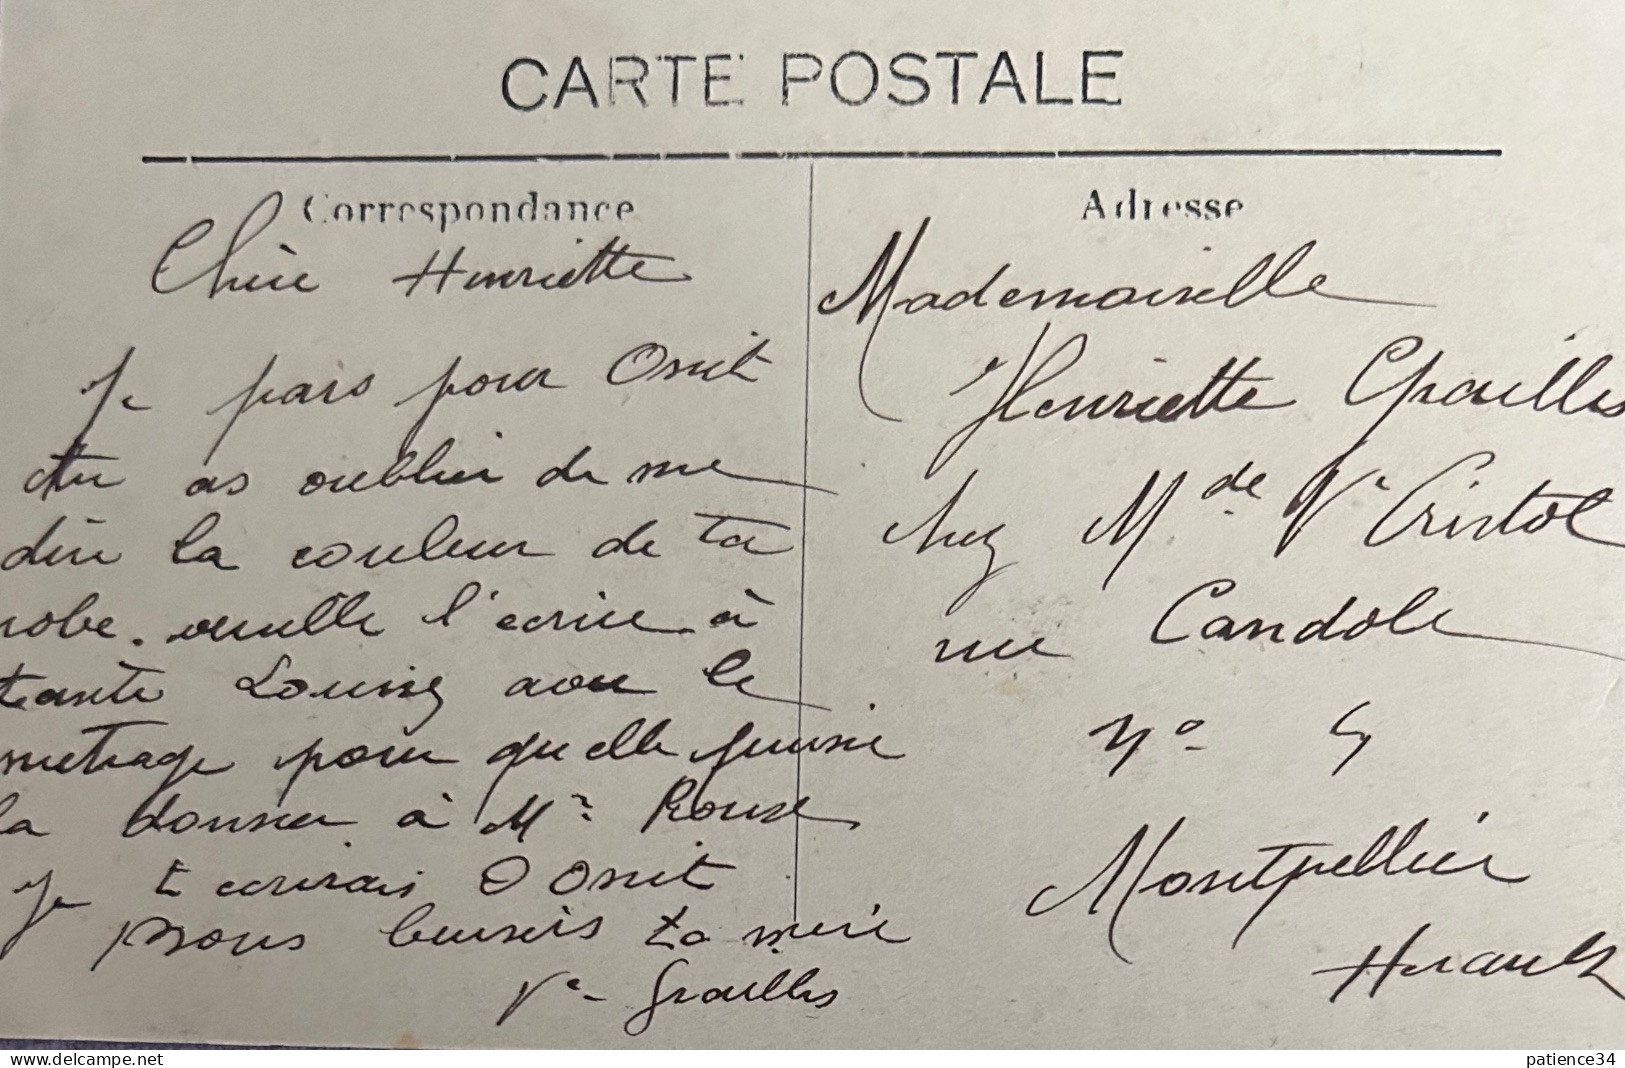 CARTE POSTALE
Correspondance
Chère Henriette
Je pars pour Osnit
tu as oublier de me
dire la couleur de ta
robe. veuille l'ecrire à
tante Louise avec le
metrage pour quelle puisse
la donner à Mr Roux
Je t ecrirais Osnit
nous ta mère
Ve Grailles
Adresse
Mademoiselle
Henriette Grailles
chez Mde Ve Cristol
rue Candole
No
Montpellier
Herault
delcampe.net
patience34